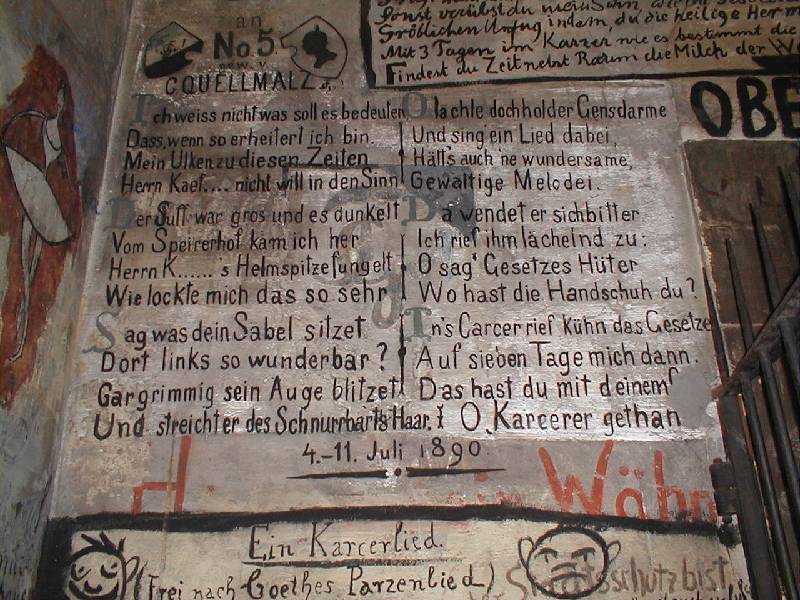 Sonst verübst du mein Sohn,
Gröblichen Unfug indem, du die heilige Her
Mit 3 Tagen im Karzer wie es bestimmt die
Findest du Zeit nebst Raum die Milch der
an
No. 5
COUELLMALZ
OBE
Ich weiss nicht was soll es bedeuten
Dass, wenn so erheitert ich bin.
Mein Ulken zu diesen Zeiten
Herrn Kaef.... nicht will in den Sinn
Der Suff war gros und es dunkelt
Vom Speirerhof kam ich her
Herrn K......'s Helmspitze fungelt
Wie lockte mich das so sehr
Sag was dein Sabel sitzet
Dort links so wunderbar?
Gar grimmig sein Auge blitzet
Und streicht er des Schnurrbarts Haar.
O lachle doch holder Gensdarme
Und sing ein Lied dabei,
Hätt's auch 'ne wundersame,
Gewaltige Melodei.
Da wendet er sich bitter
Ich rief ihm lächelnd zu:
O sag' Gesetzes Hüter
Wo hast die Handschuh du?
In's Carcer rief kühn das Gesetze
Auf sieben Tage mich dann.
Das hast du mit deinem
O, Karcerer gethan
4.-11. Juli 1890
Währ
Ein Karcerlied.
(Frei nach Goethes Parzenlied)
Staatsschutz bist